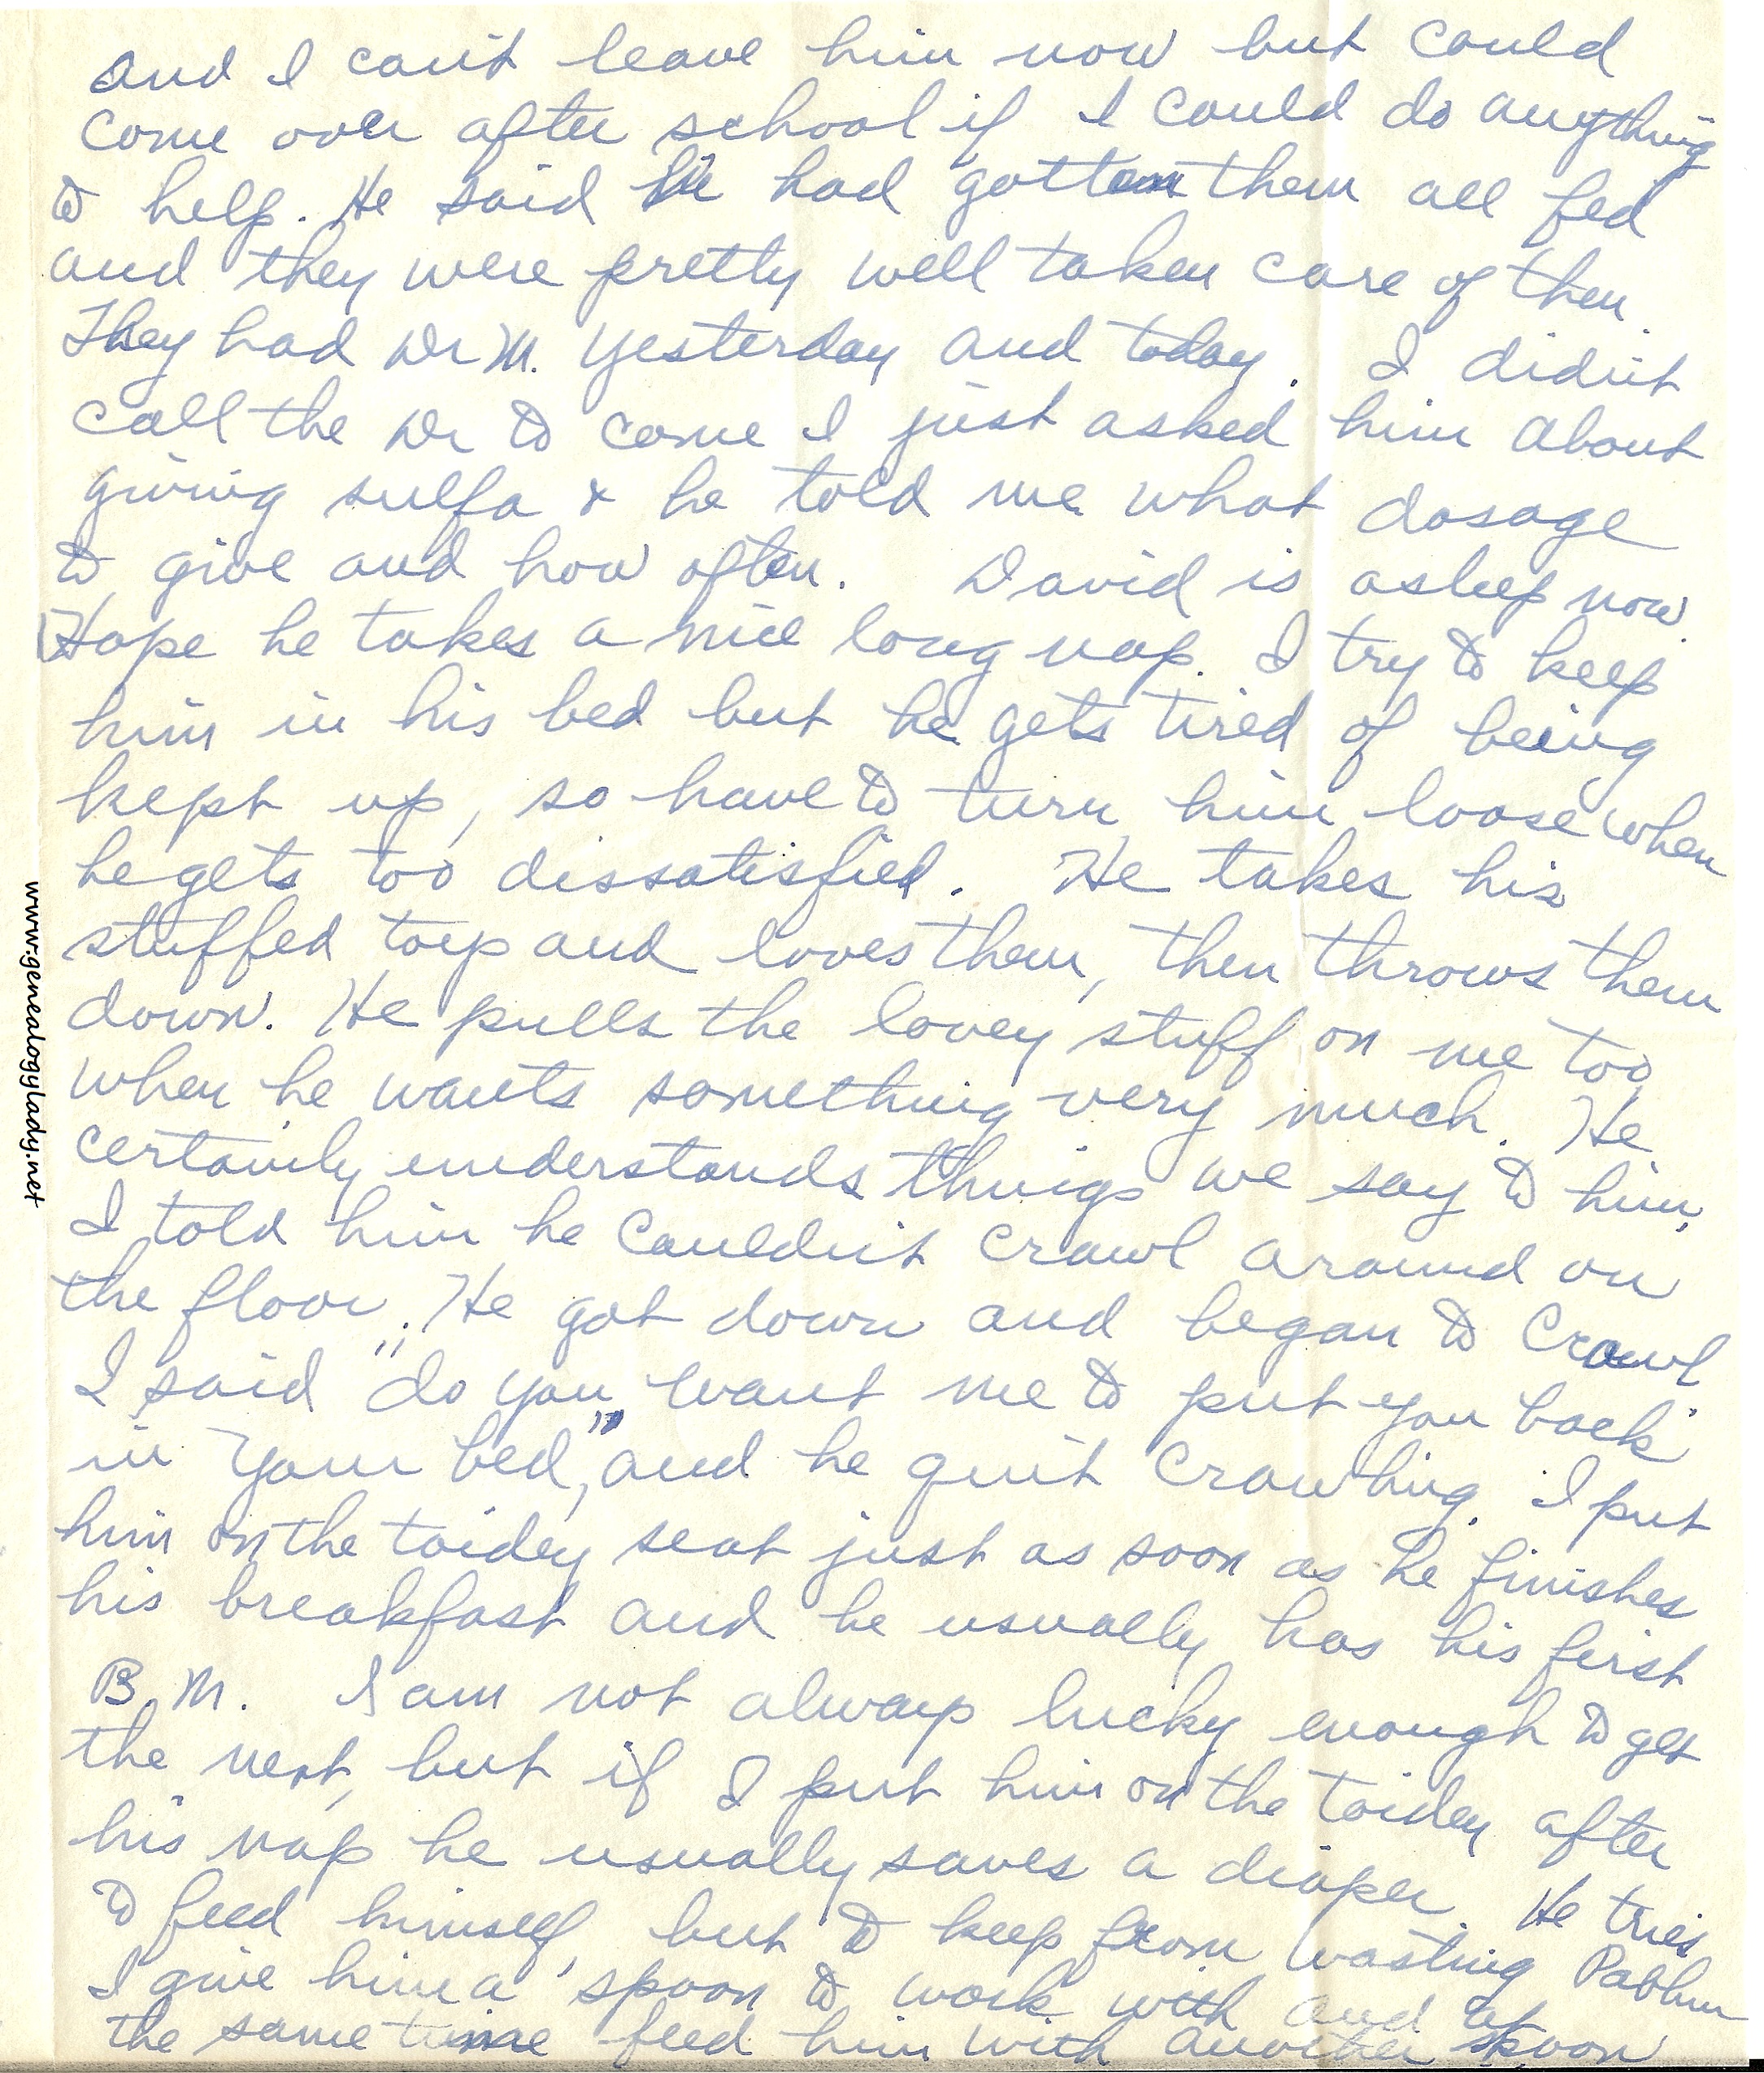 and I can't leave him now but could
come over after school if I could do anything
to help. He said he had gotten them all fed
and they were pretty well taken care of then.
They had Dr M. yesterday and today. I didn't
call the Dr to come I just asked him about
giving sulfa & he told me what dosage
to give and how often. David is asleep now.
Hope he takes a nice long nap. I try to keep
him in his bed but he gets tired of being
kept up, so have to turn him loose when
he gets too dissatisfied. He takes his
stuffed toys and loves them, then throws them
down. He pulls the lovey stuff on me too
when he wants something very much. He
certainly understands things we say to him.
I told him he couldn't crawl around on
the floor. He got down and began to crawl
I said "do you want me to put you back
in your bed," and he quit crawling. I put
him on the toidey seat just as soon as he finishes
his breakfast and he usually has his first
B.M. I am not always lucky enough to get
the next, but if I put him on the toidey after
his nap he usually saves a diaper. He tries
to feed himself, but to keep from wasting Pablum
I give him a spoon to work with and at
the same time feed him with another spoon
www.genealogylady.net